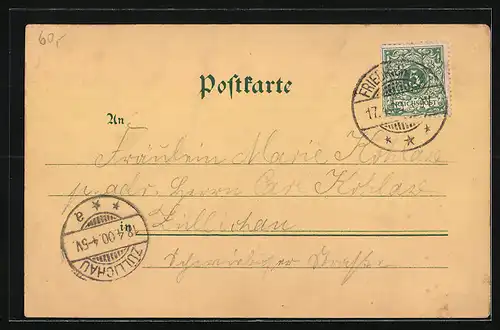 60,-
Postkarte
5
REICHSPOST
FRIED
17.
An
Fräulein Marie Kohlase
p. adr. Herrn Carl Kohlase
in Züllichau
Schwiebuser Straße
ZÜLLICHAU
18.4.00.4-5V.
a